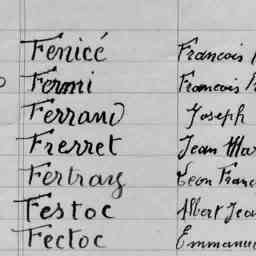 Fenicé Francois
Fermi Francois
Ferrand Joseph
Frerret Jean Mar
Fertray Leon Franc
Festoc Albert Jea
Fectoc Emmanue